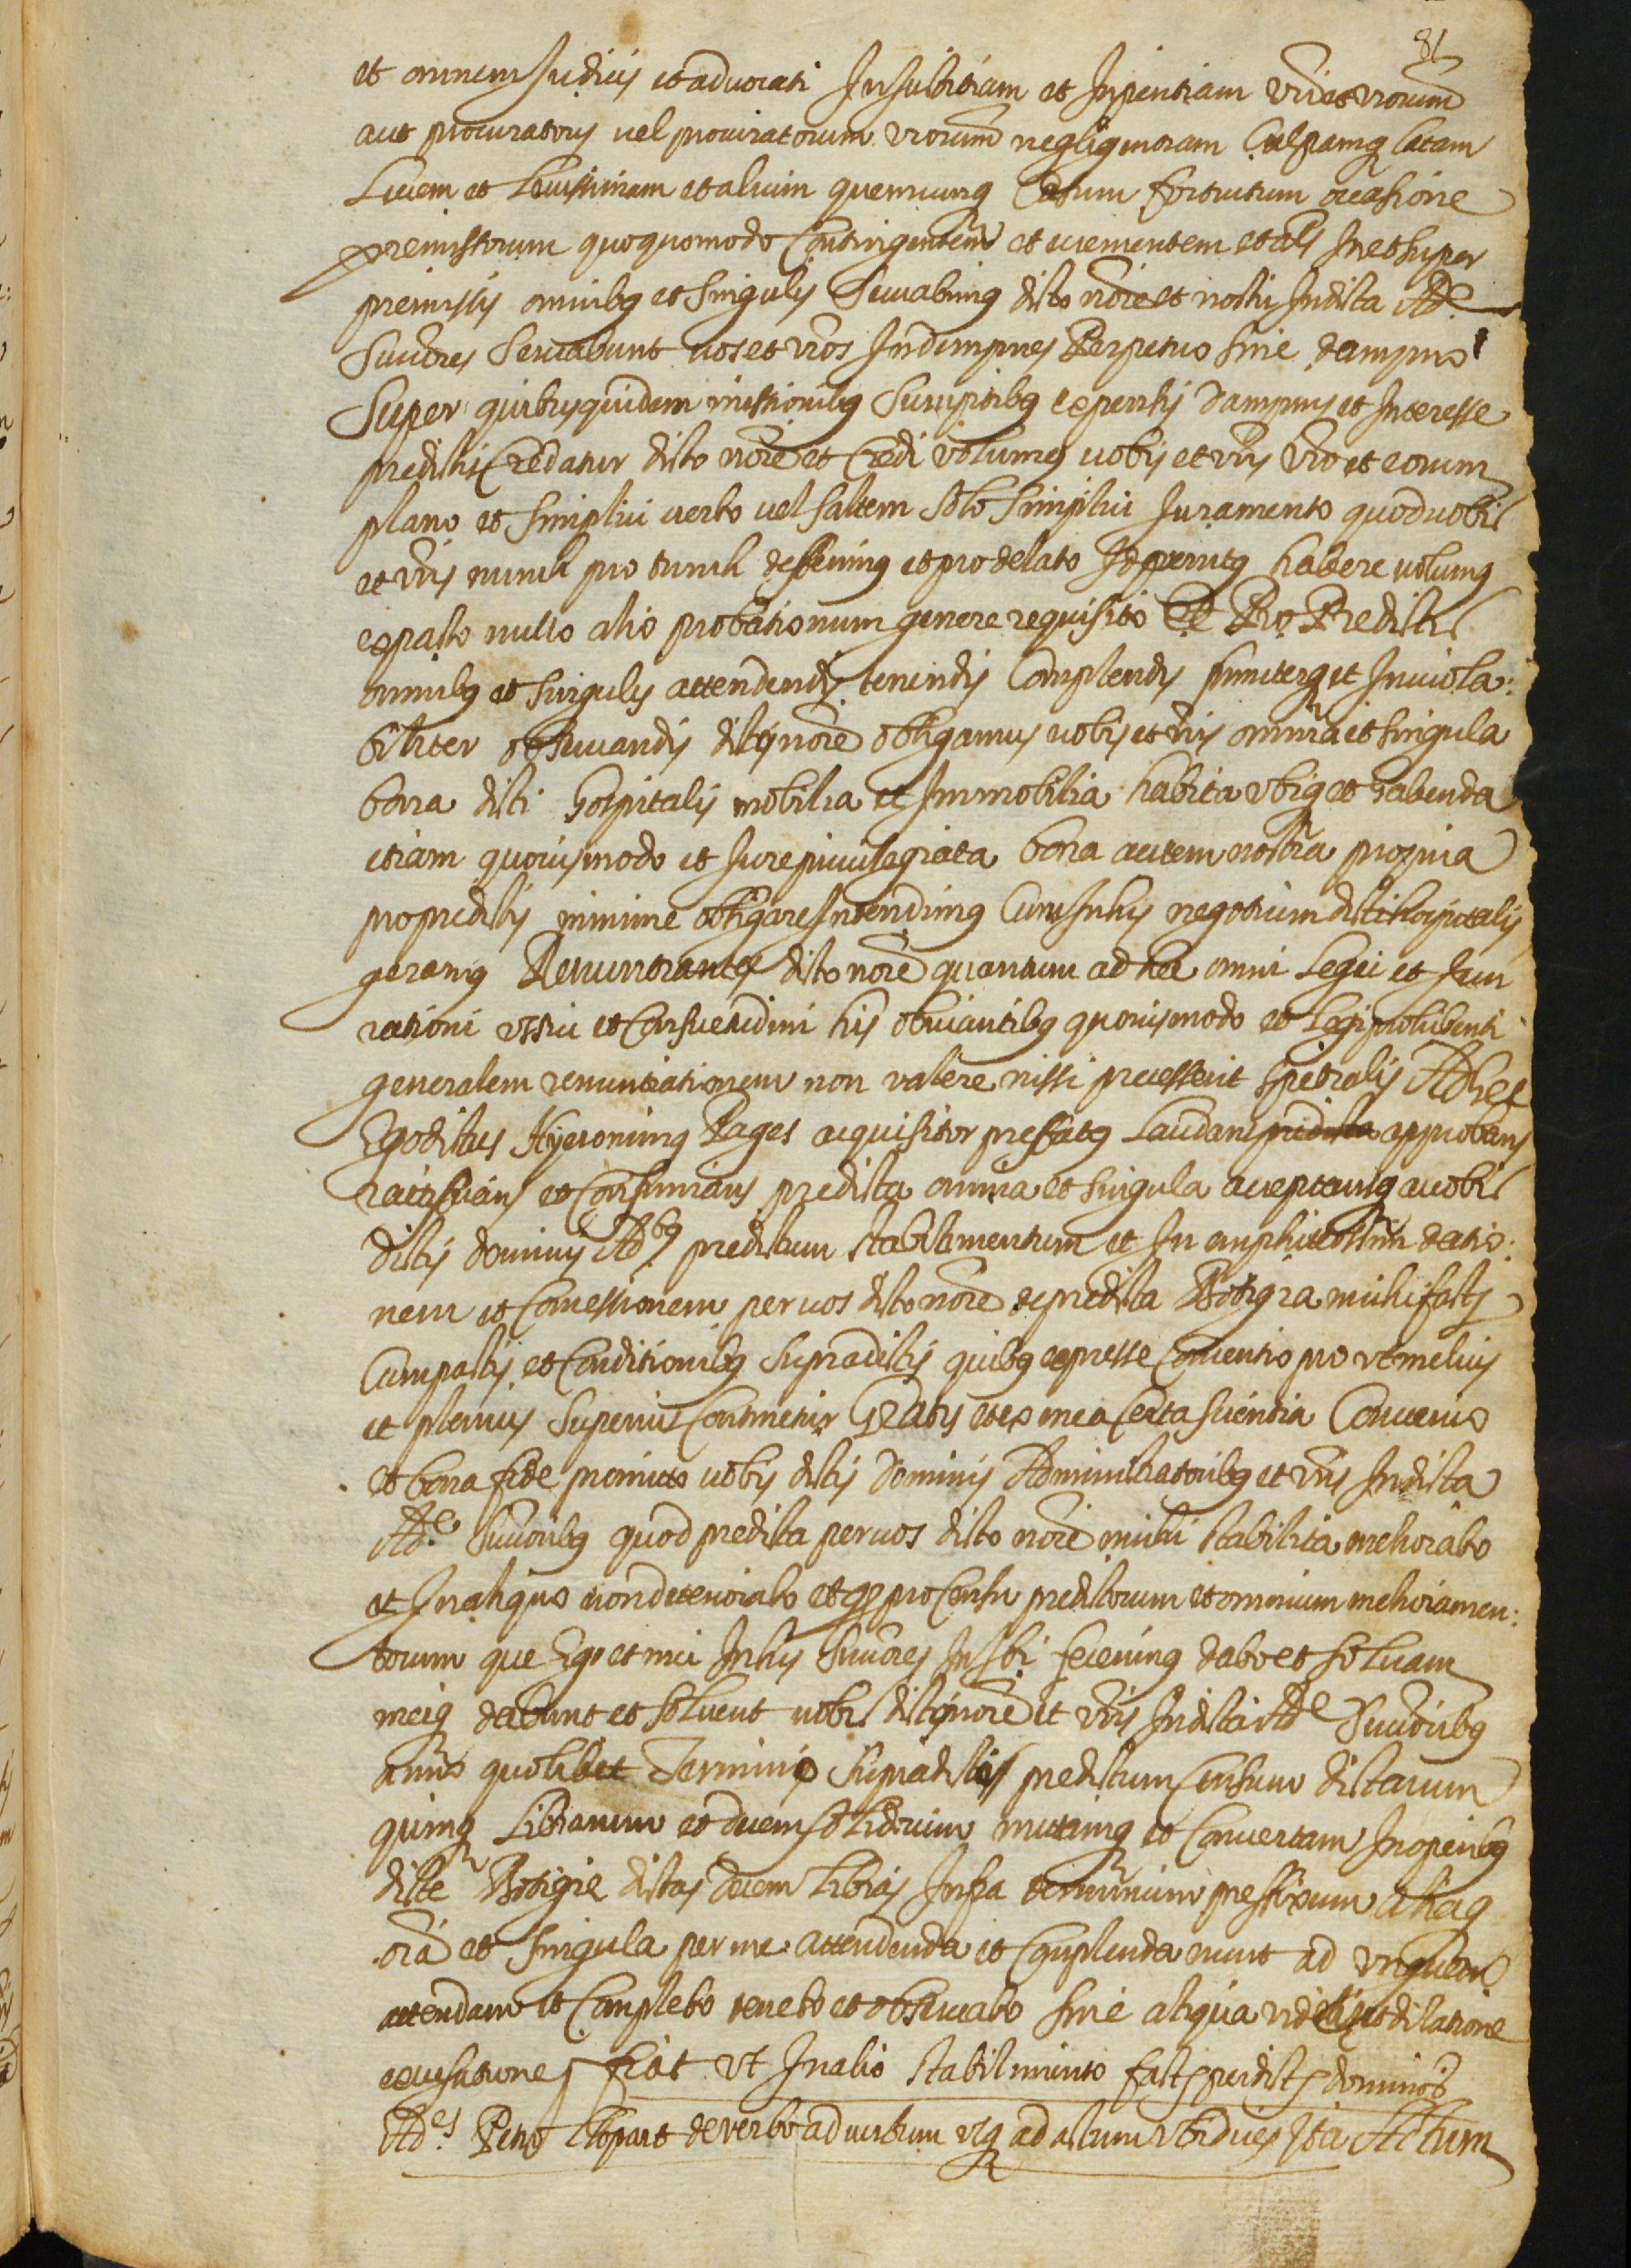 81
et omnem Judicis et advocati Insubtitiam et Inperitiam vri et vrorum
aut procuratoris vel procuratorum vrorum negligenciam Culpamq latam
Levem et Levissimam et alium quemcunq Casum fortuitum occasione
premissorum quoquomodo Contingentem et evenientem et als In et super
premissis omnibq et singulis Servabimq dicto noie et nostri In dicta Ade
Succores Servabunt vos et vros Indempnes Perpetuo sine dampno
Super quibusquidem missionibq Sumptibq expensis dampnis et Interesse
predictis Credatur dicto noie et Credi volumq vobis et vris vro et eorum
plano et simplici verbo vel saltem solo simplici Juramento quod vobis
et vris nunch pro tunch defferimq et pro delato Id penitq habere volumq
ex pacto nullo alio probationum genere requisito Et Pro Predictis
omnibq et singulis attendendis tenendis Complendis firmiterq et Inviola:
biliter observandis dictis noie obligamus vobis et vris omnia et singula
bona dicti hospitalis mobilia et Immobilia habita ubiq et habenda
etiam quovismodo et Jure privilegiata bona autem nostra propria
pro predictis minime obligare Intendimq Cum In his negotium dicti hospitalis
geramq Renuntiantes dicto noie quantum ad hec omni Legi et Juri
rationi ussui et Consuetudini his obviantibq quovismodo et Legi prohibenti
generalem renuntiationem non valere nissi precesserit spetialis Ad hec
Ego dictus Hyeronimq Pages acquisitor prefatq Laudans predicta approbans
ratifficans et Confirmans predicta omnia et singula acceptansq a vobis
dictis dominis Adbq predictum stabilimentum et In emphiteosim datio:
nem et Concessionem per vos dicto noie de predicta Botigia mihi factis
Cum pactis et Conditionibq supradictis quibq expresse Consentio pro ut melius
et plenius superius Continetur Gratis et ex mea Certa scientia Convenio
et bona fide promitto vobis dictis Dominis Administratoribq et vris In dicta
Ade Succoribq quod predicta per vos dicto noie mihi stabilita meliorabo
et In aliquo non deteriorabo et q pro Censu predictorum et omnium melioramen:
torum que Ego et mei In his Succores In sbi fecerimq dabo et solvam
meiq dabunt et solvent vobis dictis noie et vris In dicta Ade Succoribq
anno quolibet Termino supradictis predictum Censum dictarum
quinq Librarum et decem solidorum mittamq et Convertam In operibq
dicte Botigie dictas decem Libras Infra terminum prefixum aliaq
oia et singula per me attendenda et Complenda nunc ad unguem
attendam et Complebo tenebo et observabo sine aliqua videlicet dilatione
excusatione fiat ut In alio stabilimento facto per dictos dominos
Ades Petro Llopart de verbo ad verbum usq ad actum ubi dues Ita Actum